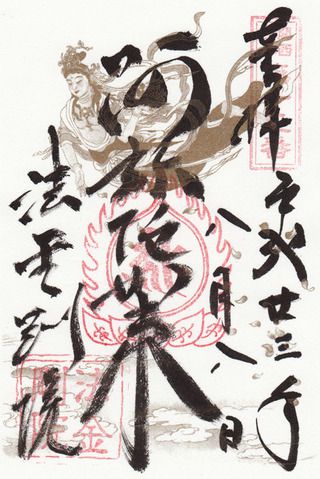 奉拝 平成廿三年
八月八日
阿弥陀如来
法金剛院
法金
剛院